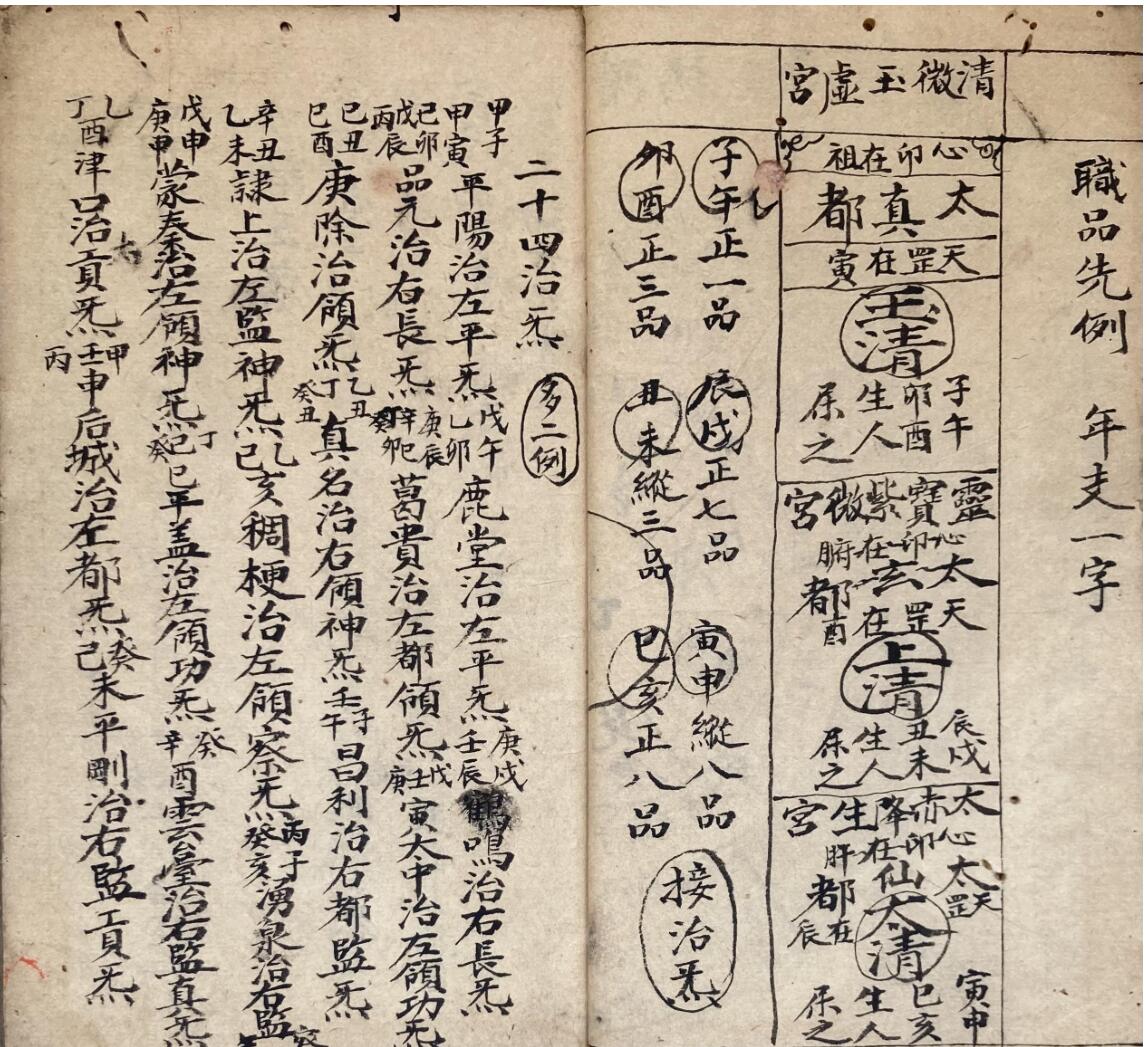 職品先例 年支一字
清微玉虛宮
心印在祖
太真都
天罡在寅
玉清
子午卯酉生人屎之
靈寶紫微宮
心印在腑
太玄都
天罡在酉
上清
辰戌丑未生人屎之
太赤降生宮
心印在肝
太仙都
天罡在辰
太清
寅申巳亥生人屎之
子午正一品 辰戌正七品 寅申縱八品
卯酉正三品 丑未縱三品 巳亥正八品 接治炁
二十四治炁 多二例
甲子甲寅平陽治左平炁戊午乙卯鹿堂治左平炁庚戌壬辰鶴鳴治右長炁
己卯戊辰丙品元治右長炁庚辰辛巳癸卯葛貴治左都領炁戊壬庚寅大中治左領功炁
己丑巳酉庚除治領炁乙丑丁癸丑真名治右領神炁壬子午昌利治右都監炁
辛丑乙未隸上治左監神炁乙己亥稠梗治左領察炁丙子癸亥湧泉治右監
戊申庚申蒙秦治左領神炁丁己癸巳平盖治左領功炁癸辛酉雲臺治右監真炁
乙丁酉津口治貢炁甲壬丙申后城治左都炁癸己未平剛治右監貢炁